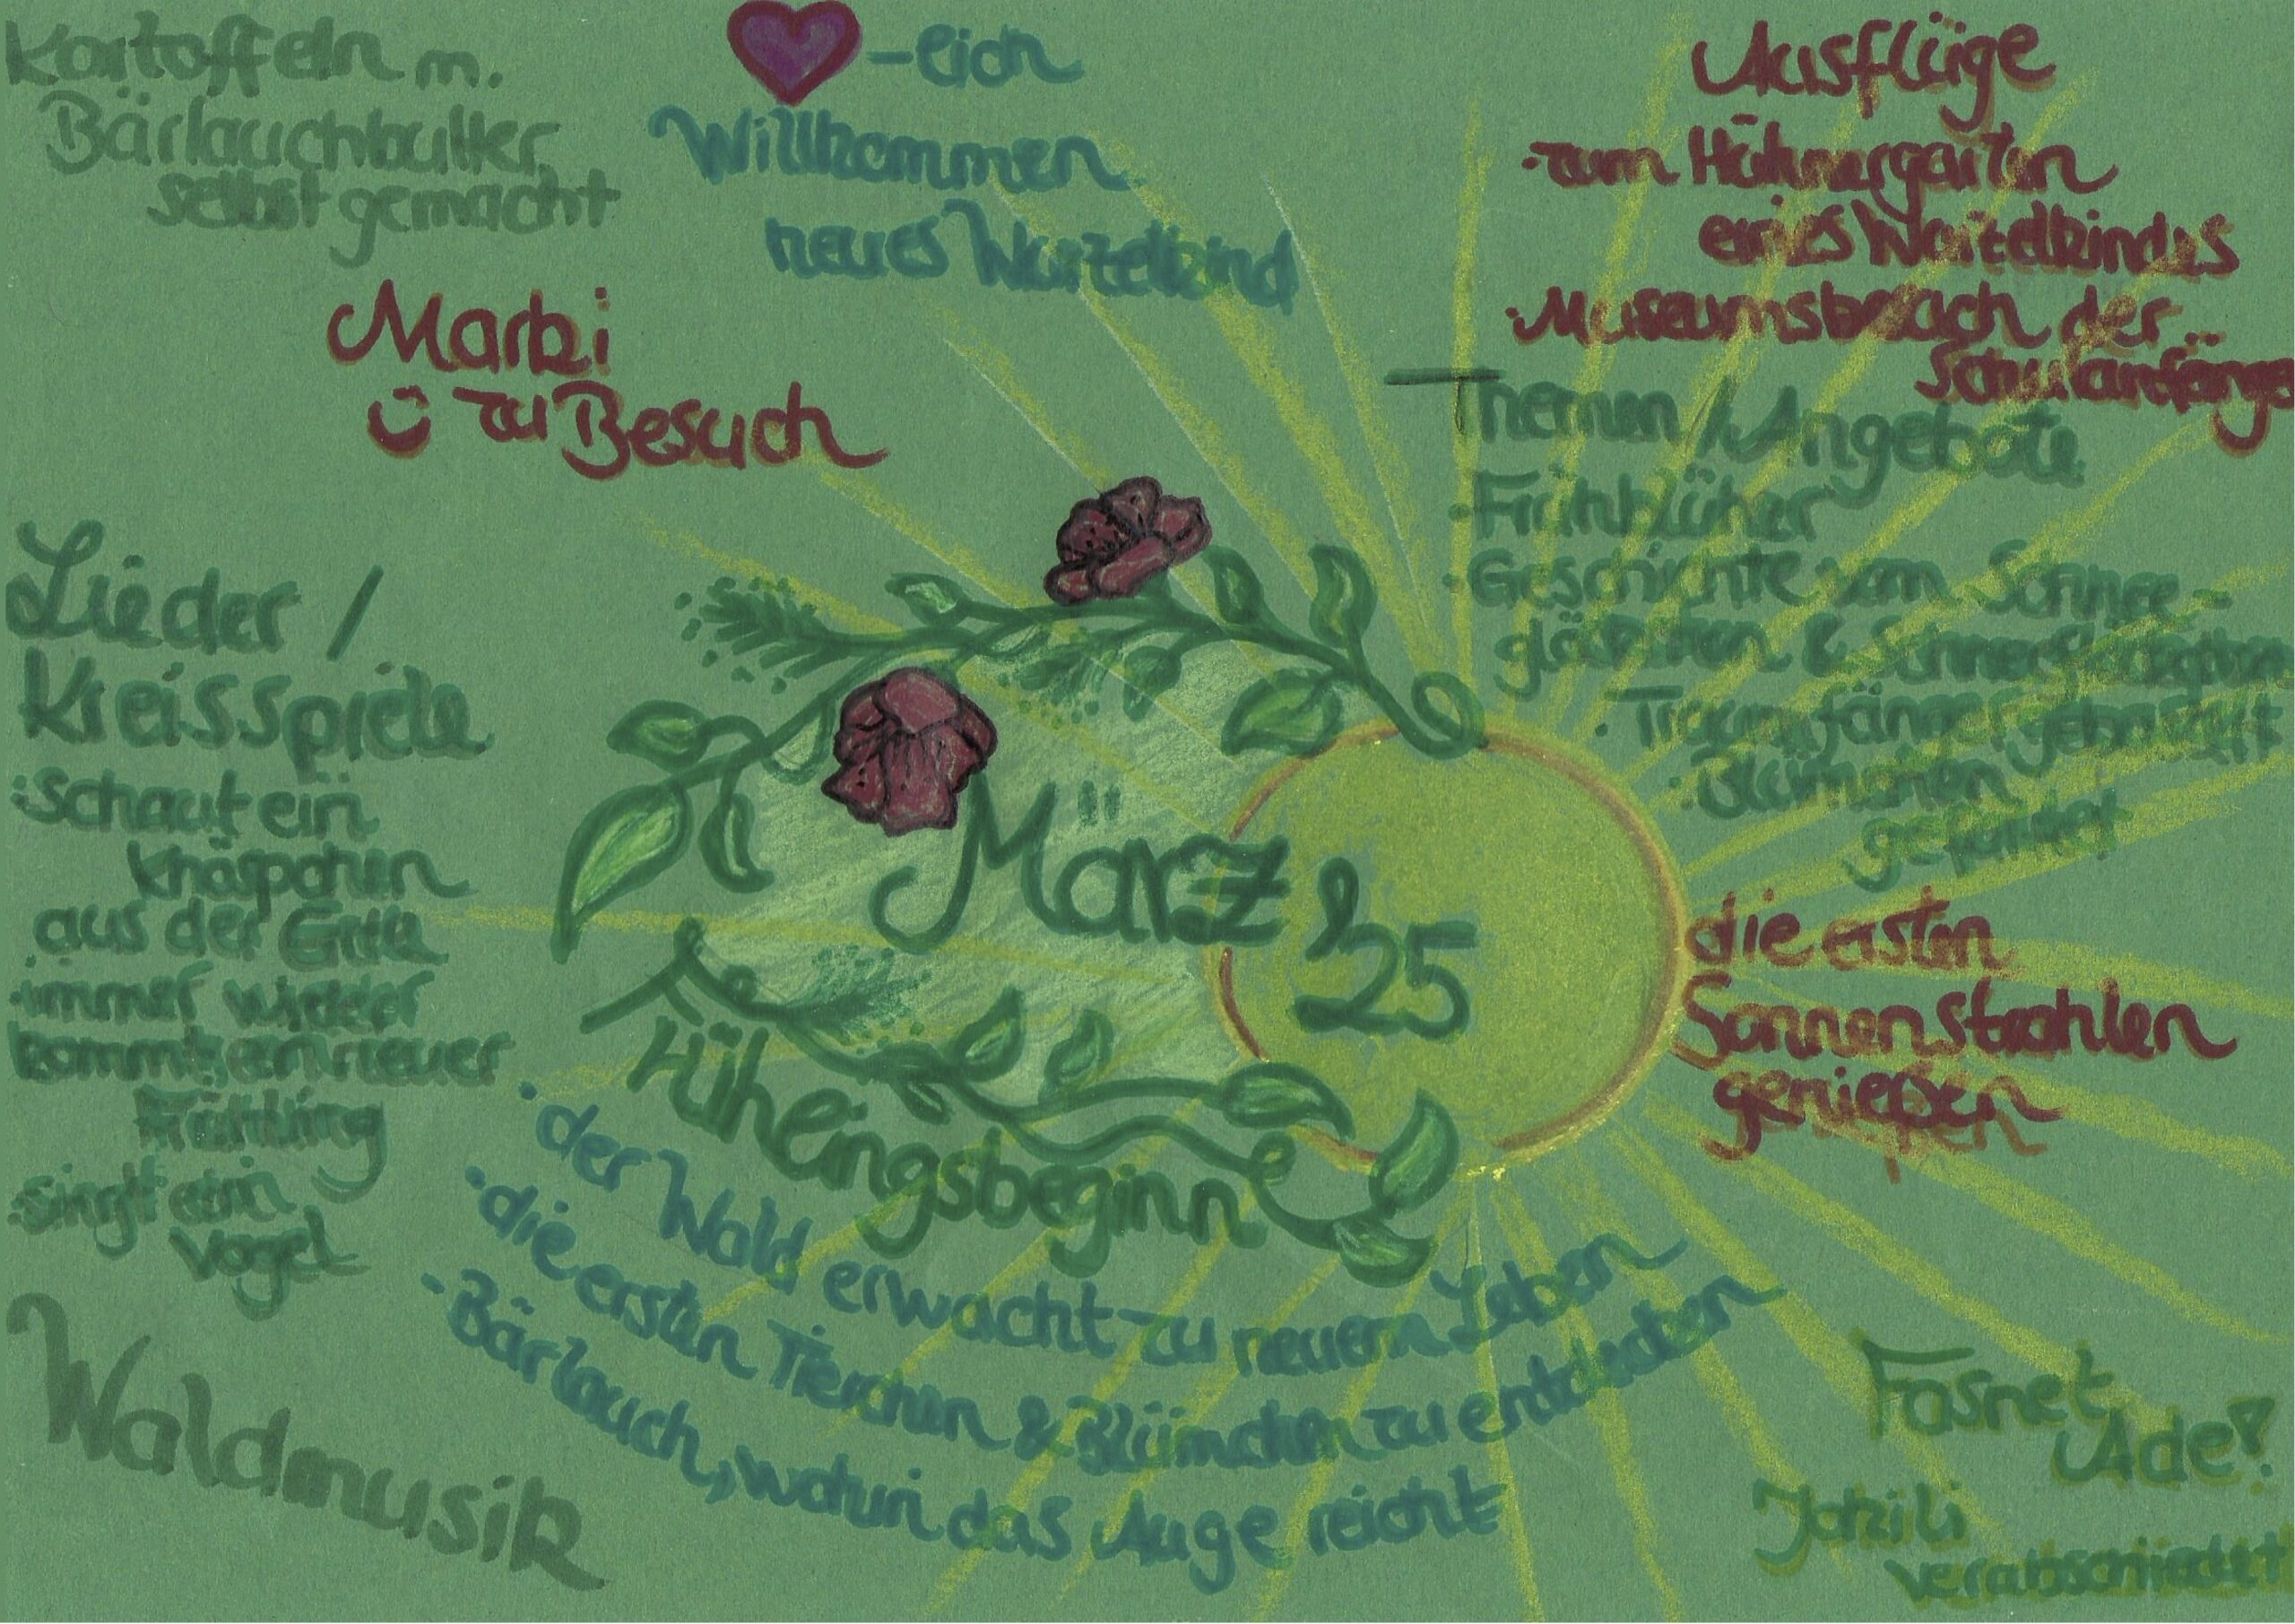 Kartoffeln m.
Bärlauchbutter
selbst gemacht
-lich
Willkommen
neues Wurzelkind
Ausflüge
·zum Hühnergarten
eines Wurzelkindes
·Museumsbesuch der
Schulanfänge
Marbi
zu Besuch
Themen/Angebote
·Frühblüher
·Geschichte vom Schnee-
glöckchen & Schneeflöckchen
·Traumfänger gebastelt
·Blümchen
gefaltet
Lieder /
Kreisspiele
·Schaut ein
Knäspchen
aus der Erde
·immer wieder
kommt ein neuer
Frühling
·singt ein
Vogel
März '25
Frühlingsbeginn
die ersten
Sonnenstrahlen
genießen
·der Wald erwacht zu neuem Leben
·die ersten Tierchen & Blümchen zu entdecken
·Bärlauch, wohin das Auge reicht
Waldmusik
Fasnet
Ade!
Jokili
verabschiedet